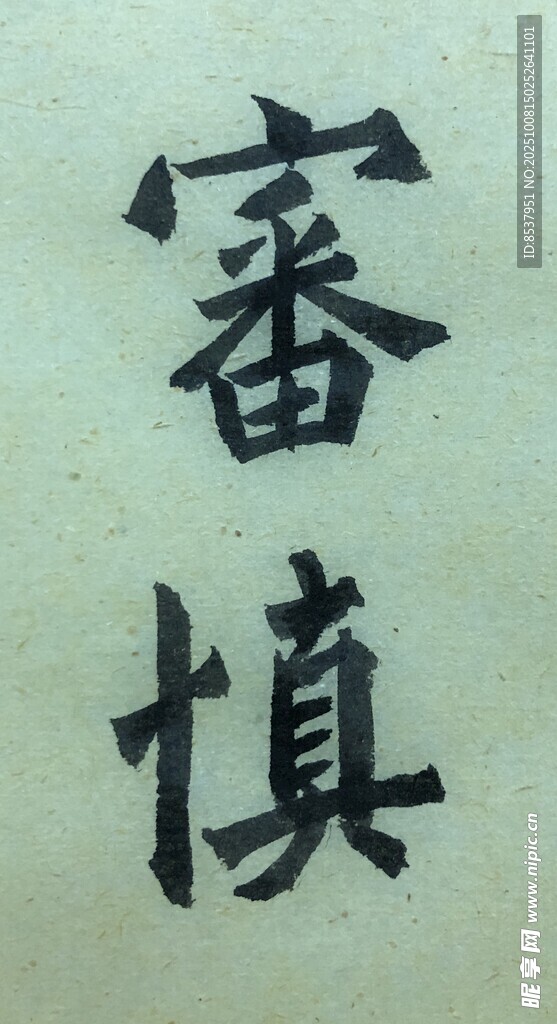 審
慎
ID:8537951 NO:20251008150252641101
昵享网 www.nipic.cn